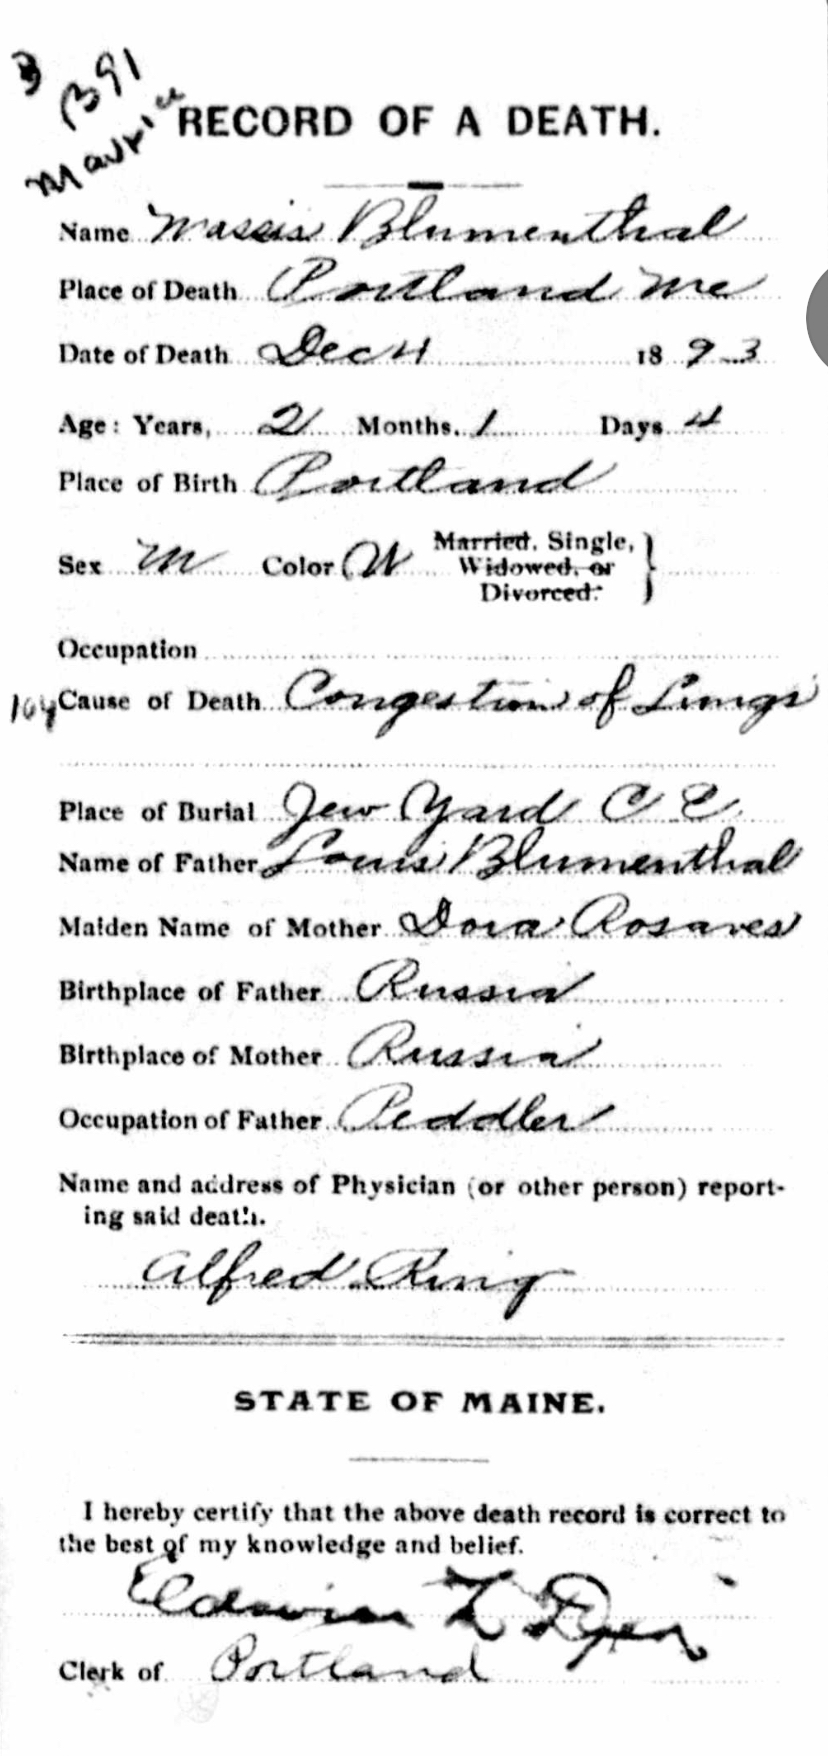 3
B91
Maurice
RECORD OF A DEATH.
Name Massis Blumenthal
Place of Death Portland Me
Date of Death Dec 4 1893
Age: Years, 2 Months. 1 Days 4
Place of Birth Portland
Sex M Color W Married, Single,
Widowed, or
Divorced.
Occupation
104 Cause of Death Congestion of Lungs
Place of Burial Jew Yard C E
Name of Father Louis Blumenthal
Maiden Name of Mother Dora Rosaves
Birthplace of Father Russia
Birthplace of Mother Russia
Occupation of Father Peddler
Name and address of Physician (or other person) report-
ing said death.
Alfred King
STATE OF MAINE.
I hereby certify that the above death record is correct to
the best of my knowledge and belief.
Edwin L Dyer
Clerk of Portland